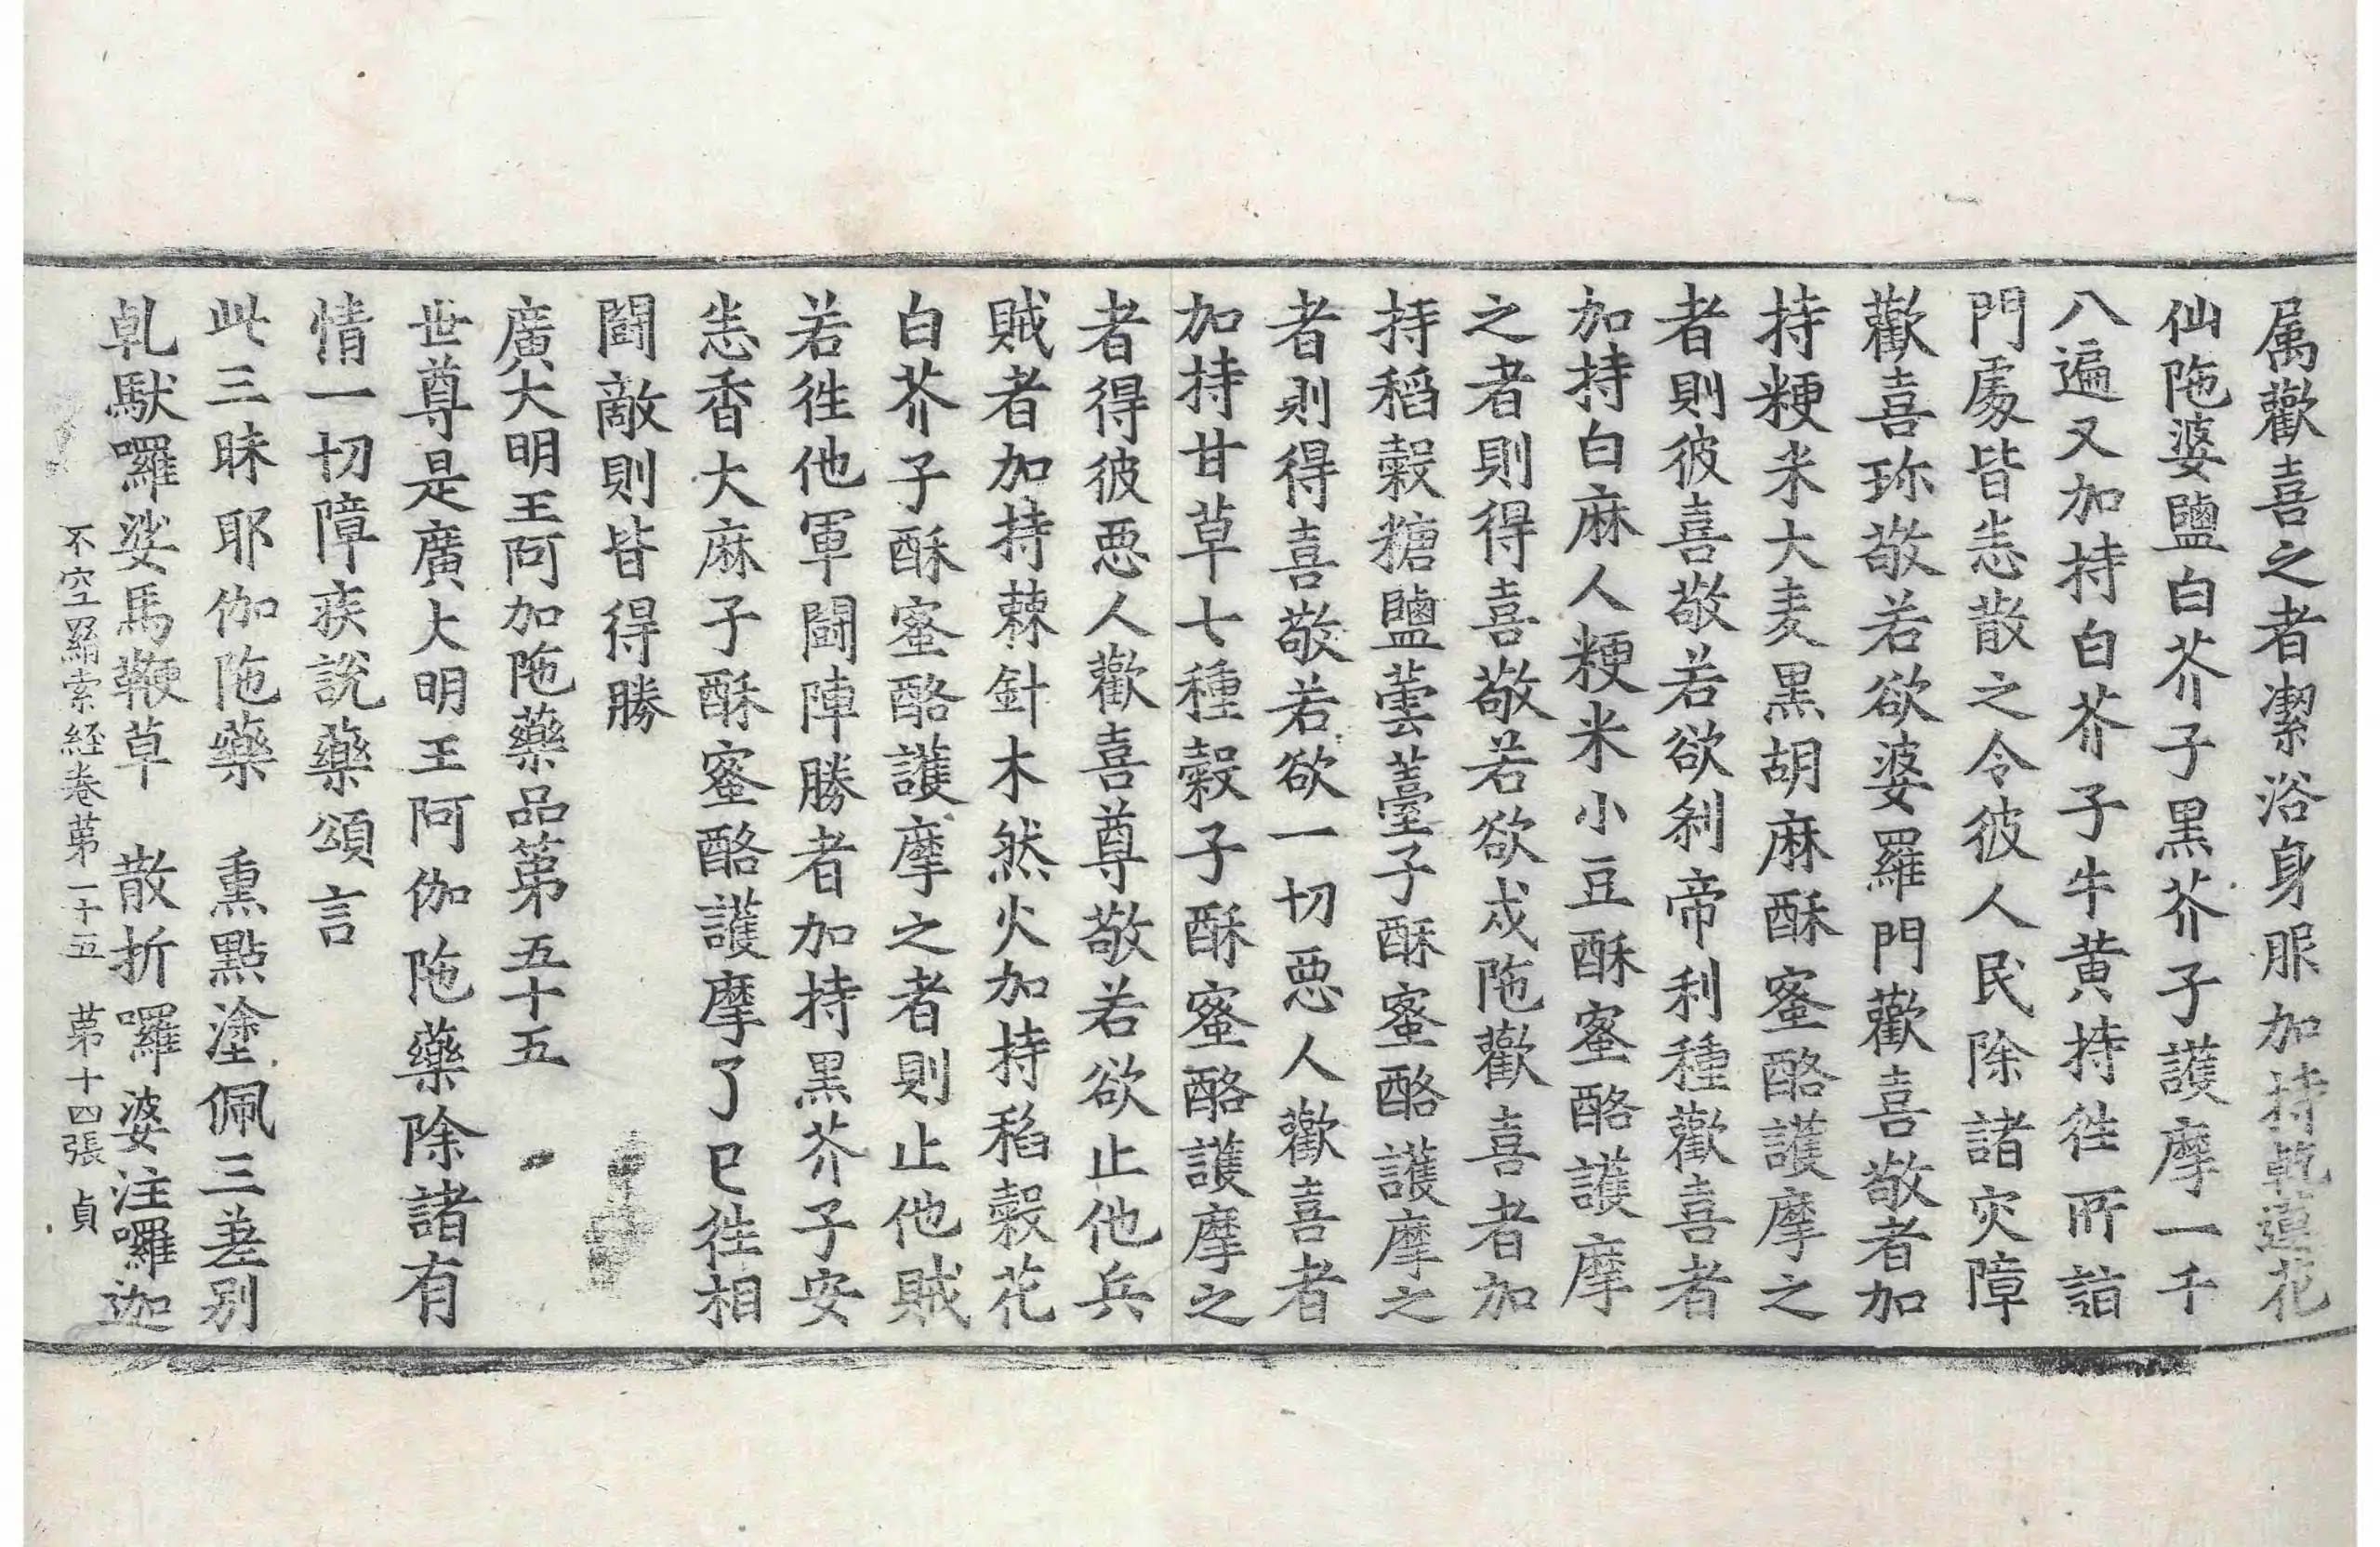 属歡喜之者潔浴身服加持乾蓮花
仙陁婆鹽白芥子黒芥子護摩一千
八遍又加持白芥子牛黄持徃所詣
門處皆恙散之令彼人民除諸灾障
歡喜珎敬若欲婆羅門歡喜敬者加
持粳米大麦黒胡麻酥蜜酪護摩之
者則彼喜敬若欲刹帝利種歡喜者
加持白麻人粳米小豆酥蜜酪護摩
之者則得喜敬若欲戍陁歡喜者加
持稻穀糖鹽蕓薹子酥蜜酪護摩之
者則得喜敬若欲一切恶人歡喜者
加持甘草七種穀子酥蜜酪護摩之
者得彼恶人歡喜尊敬若欲止他兵
賊者加持棘針木然火加持稻穀花
白芥子酥蜜酪護摩之者則止他賊
若徃他軍鬪陣勝者加持黒芥子安
恙香大麻子酥蜜酪護摩了已徃相
鬪敵則皆得勝
廣大明王阿加陁藥品第五十五
世尊是廣大明王阿伽陁藥除諸有
情一切障疾說藥頌言
此三昧耶伽陁藥　熏點塗佩三差别
乹馱囉娑馬鞭草　散折囉婆注囉迦
不空羂索経卷苐二十五　苐十四張　貞